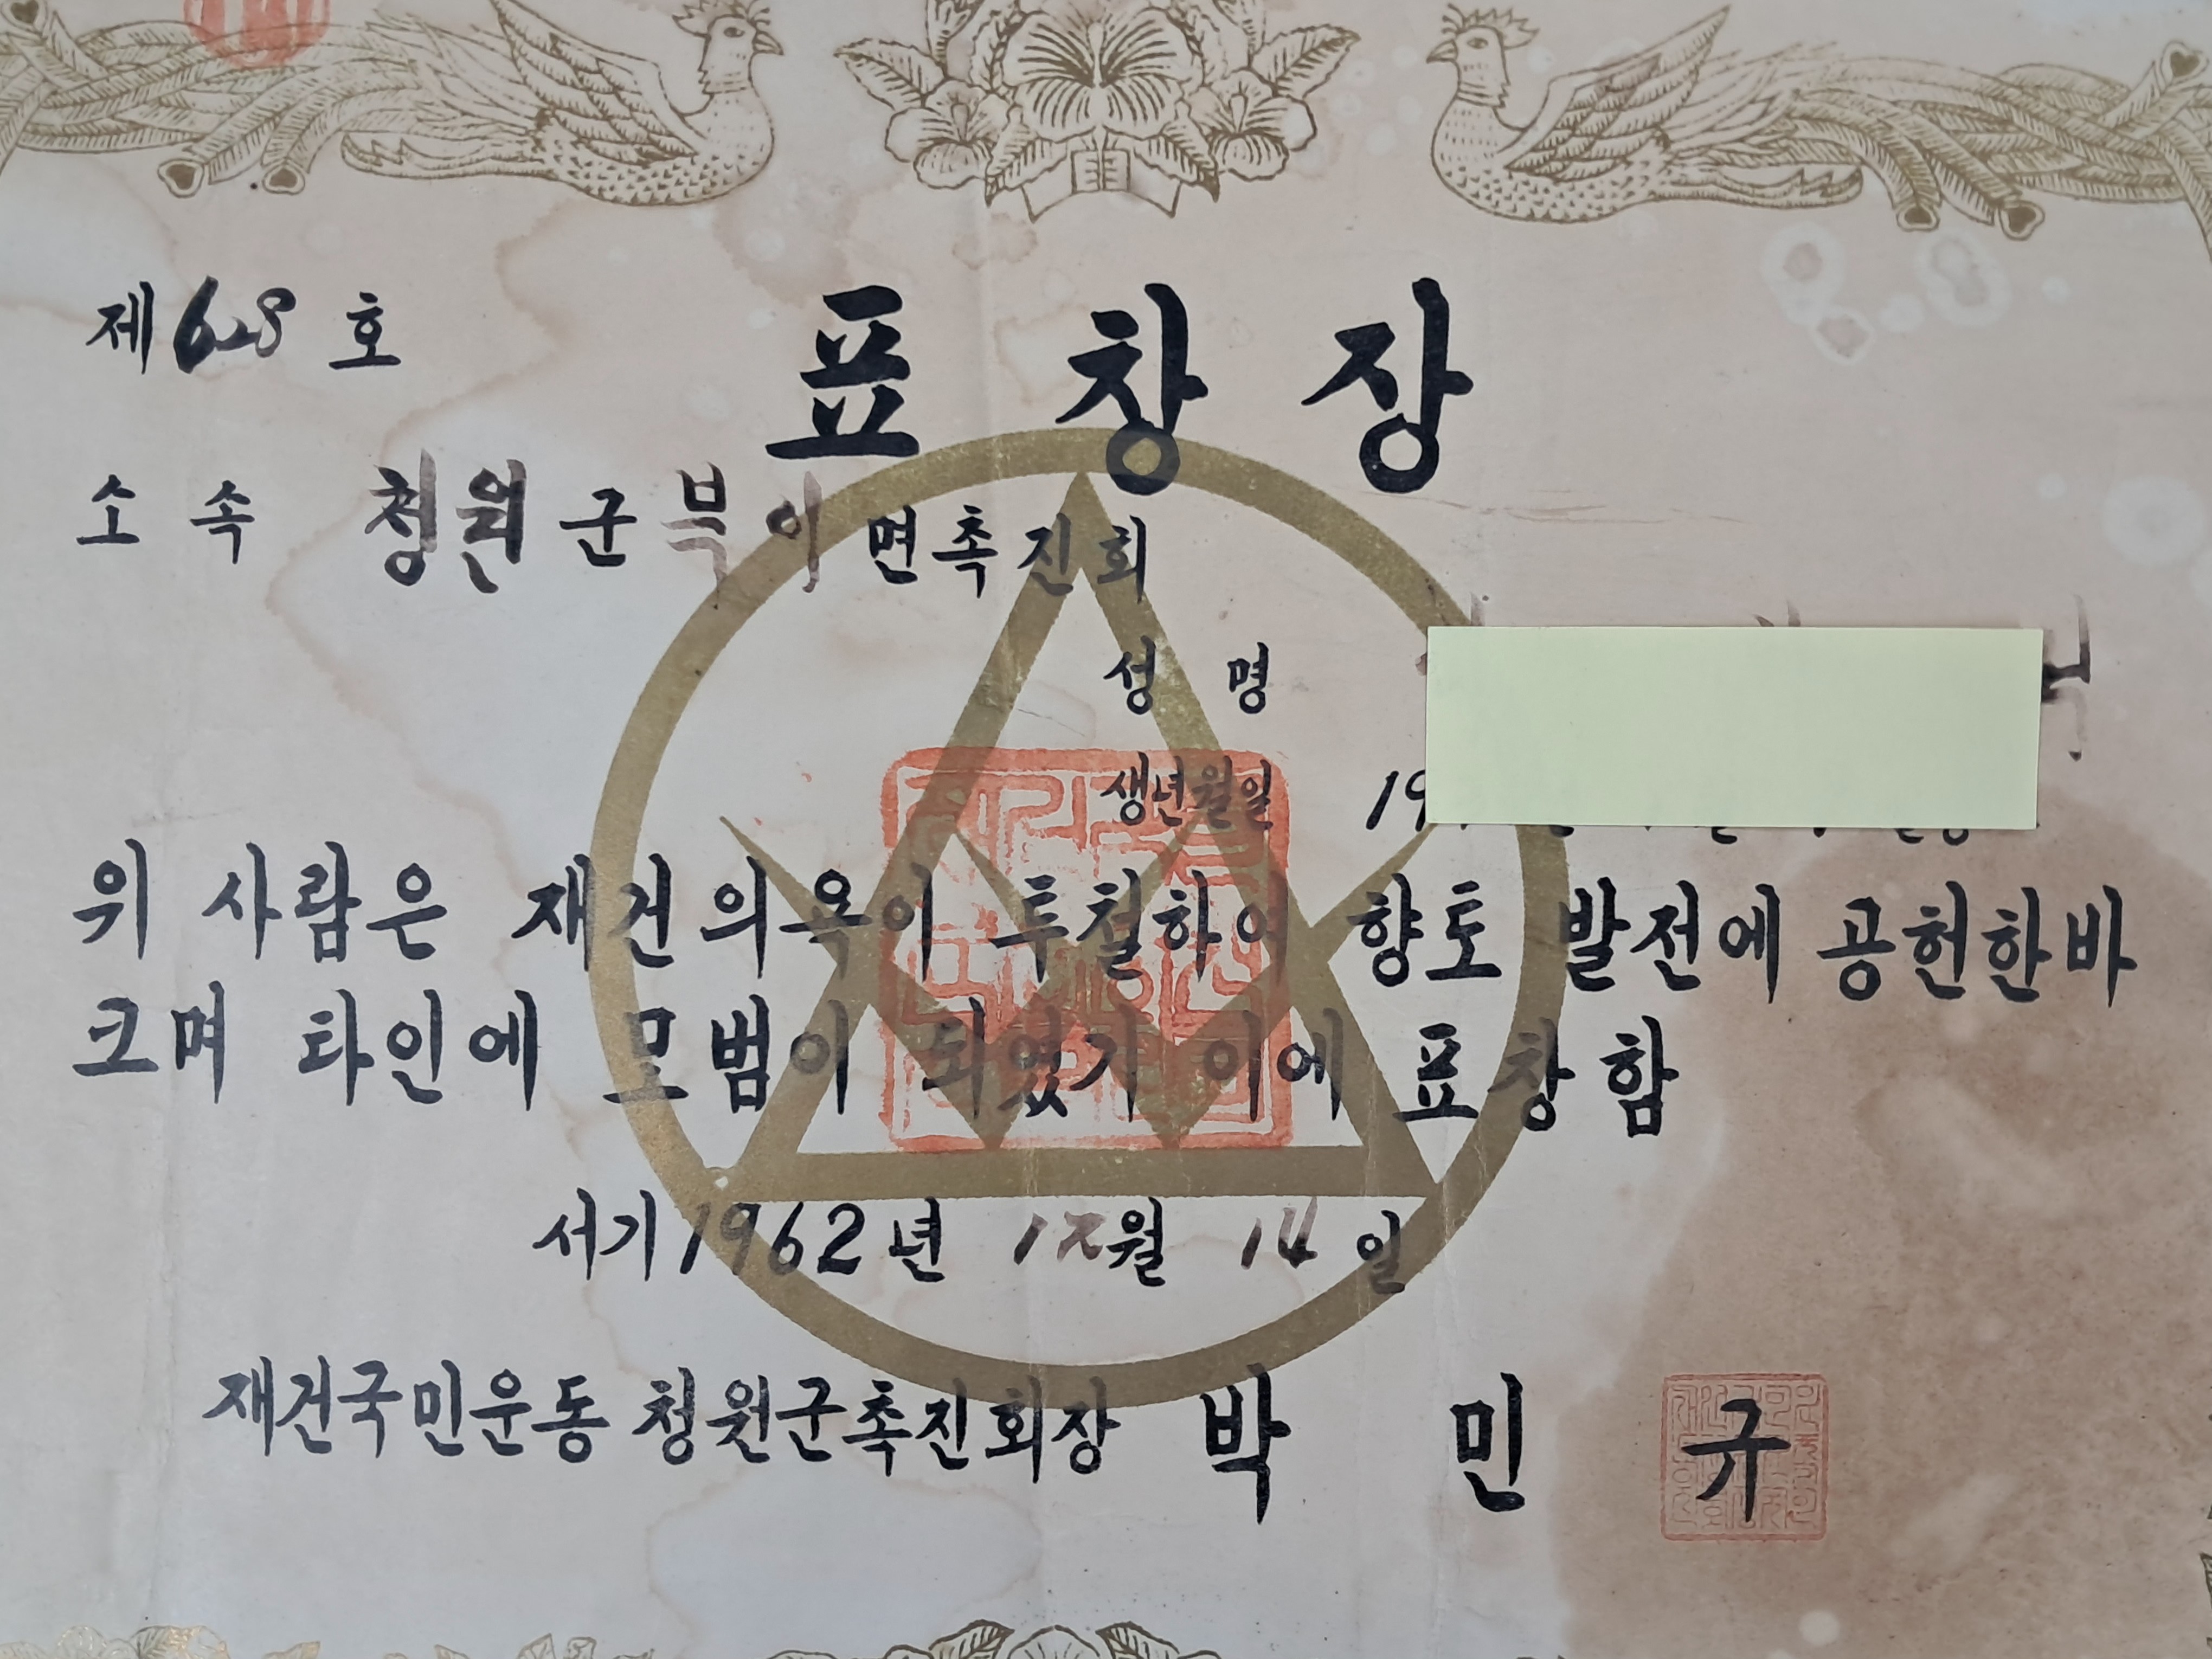 표창장
제 628 호
소속 청원군 북이면촉진회
성명
생년월일 19
위 사람은 재건의욕이 투철하여 향토 발전에 공헌한바
크며 타인에 모범이 되였기 이에 표창함
서기 1962년 12월 14일
재건국민운동 청원군촉진회장 박민규